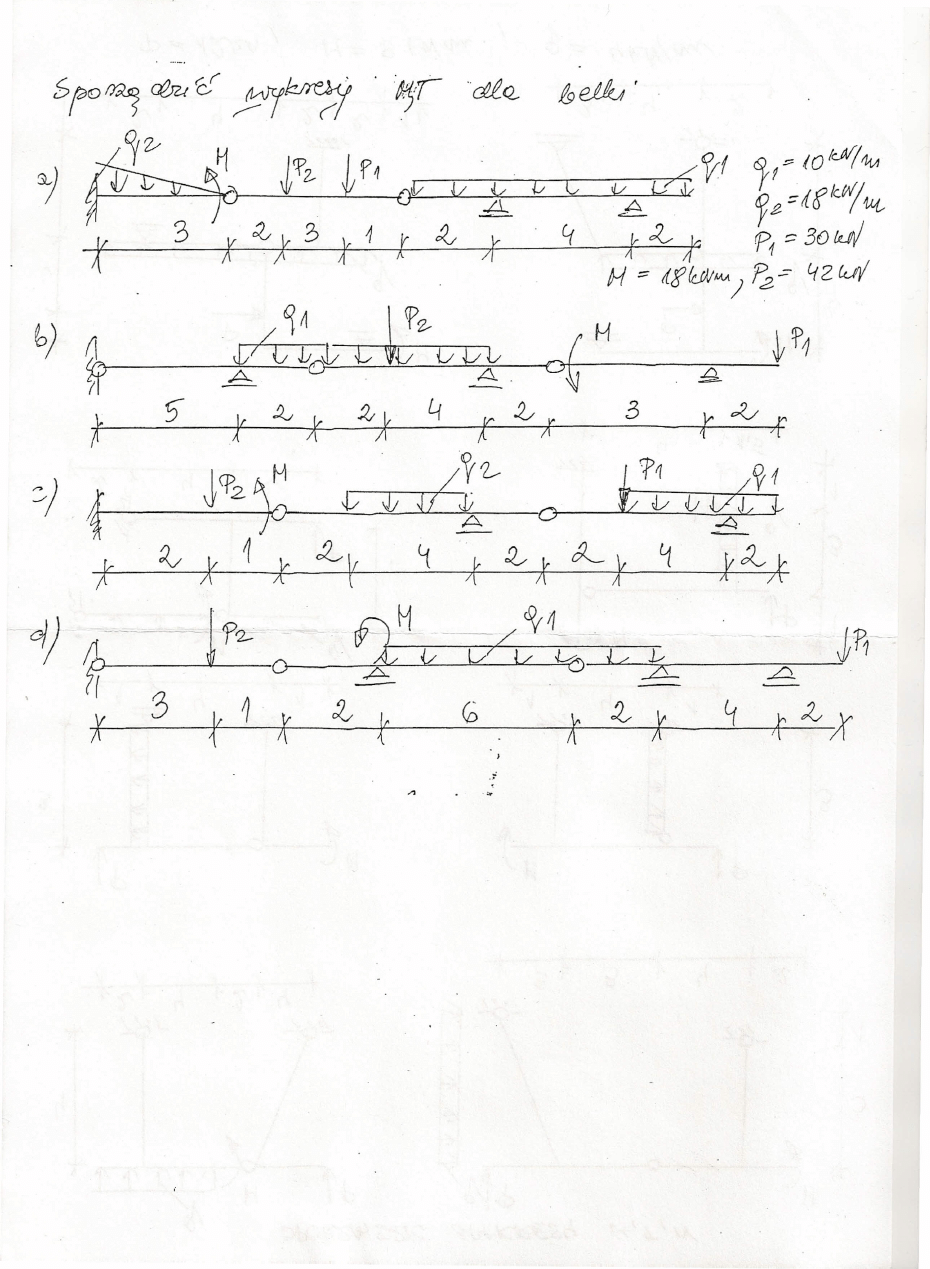 Sporządzić wykresy M,T dla belki
a) q2 M P2 P1 q1
q1 = 10 kN/m
q2 = 18 kN/m
P1 = 30 kN
3 2 3 1 2 4 2
M = 18 kNm, P2 = 42 kN
b) q1 P2 M P1
5 2 2 4 2 3 2
c) P2 M q2 P1 q1
2 1 2 4 2 2 4 2
d) P2 M q1 P1
3 1 2 6 2 4 2